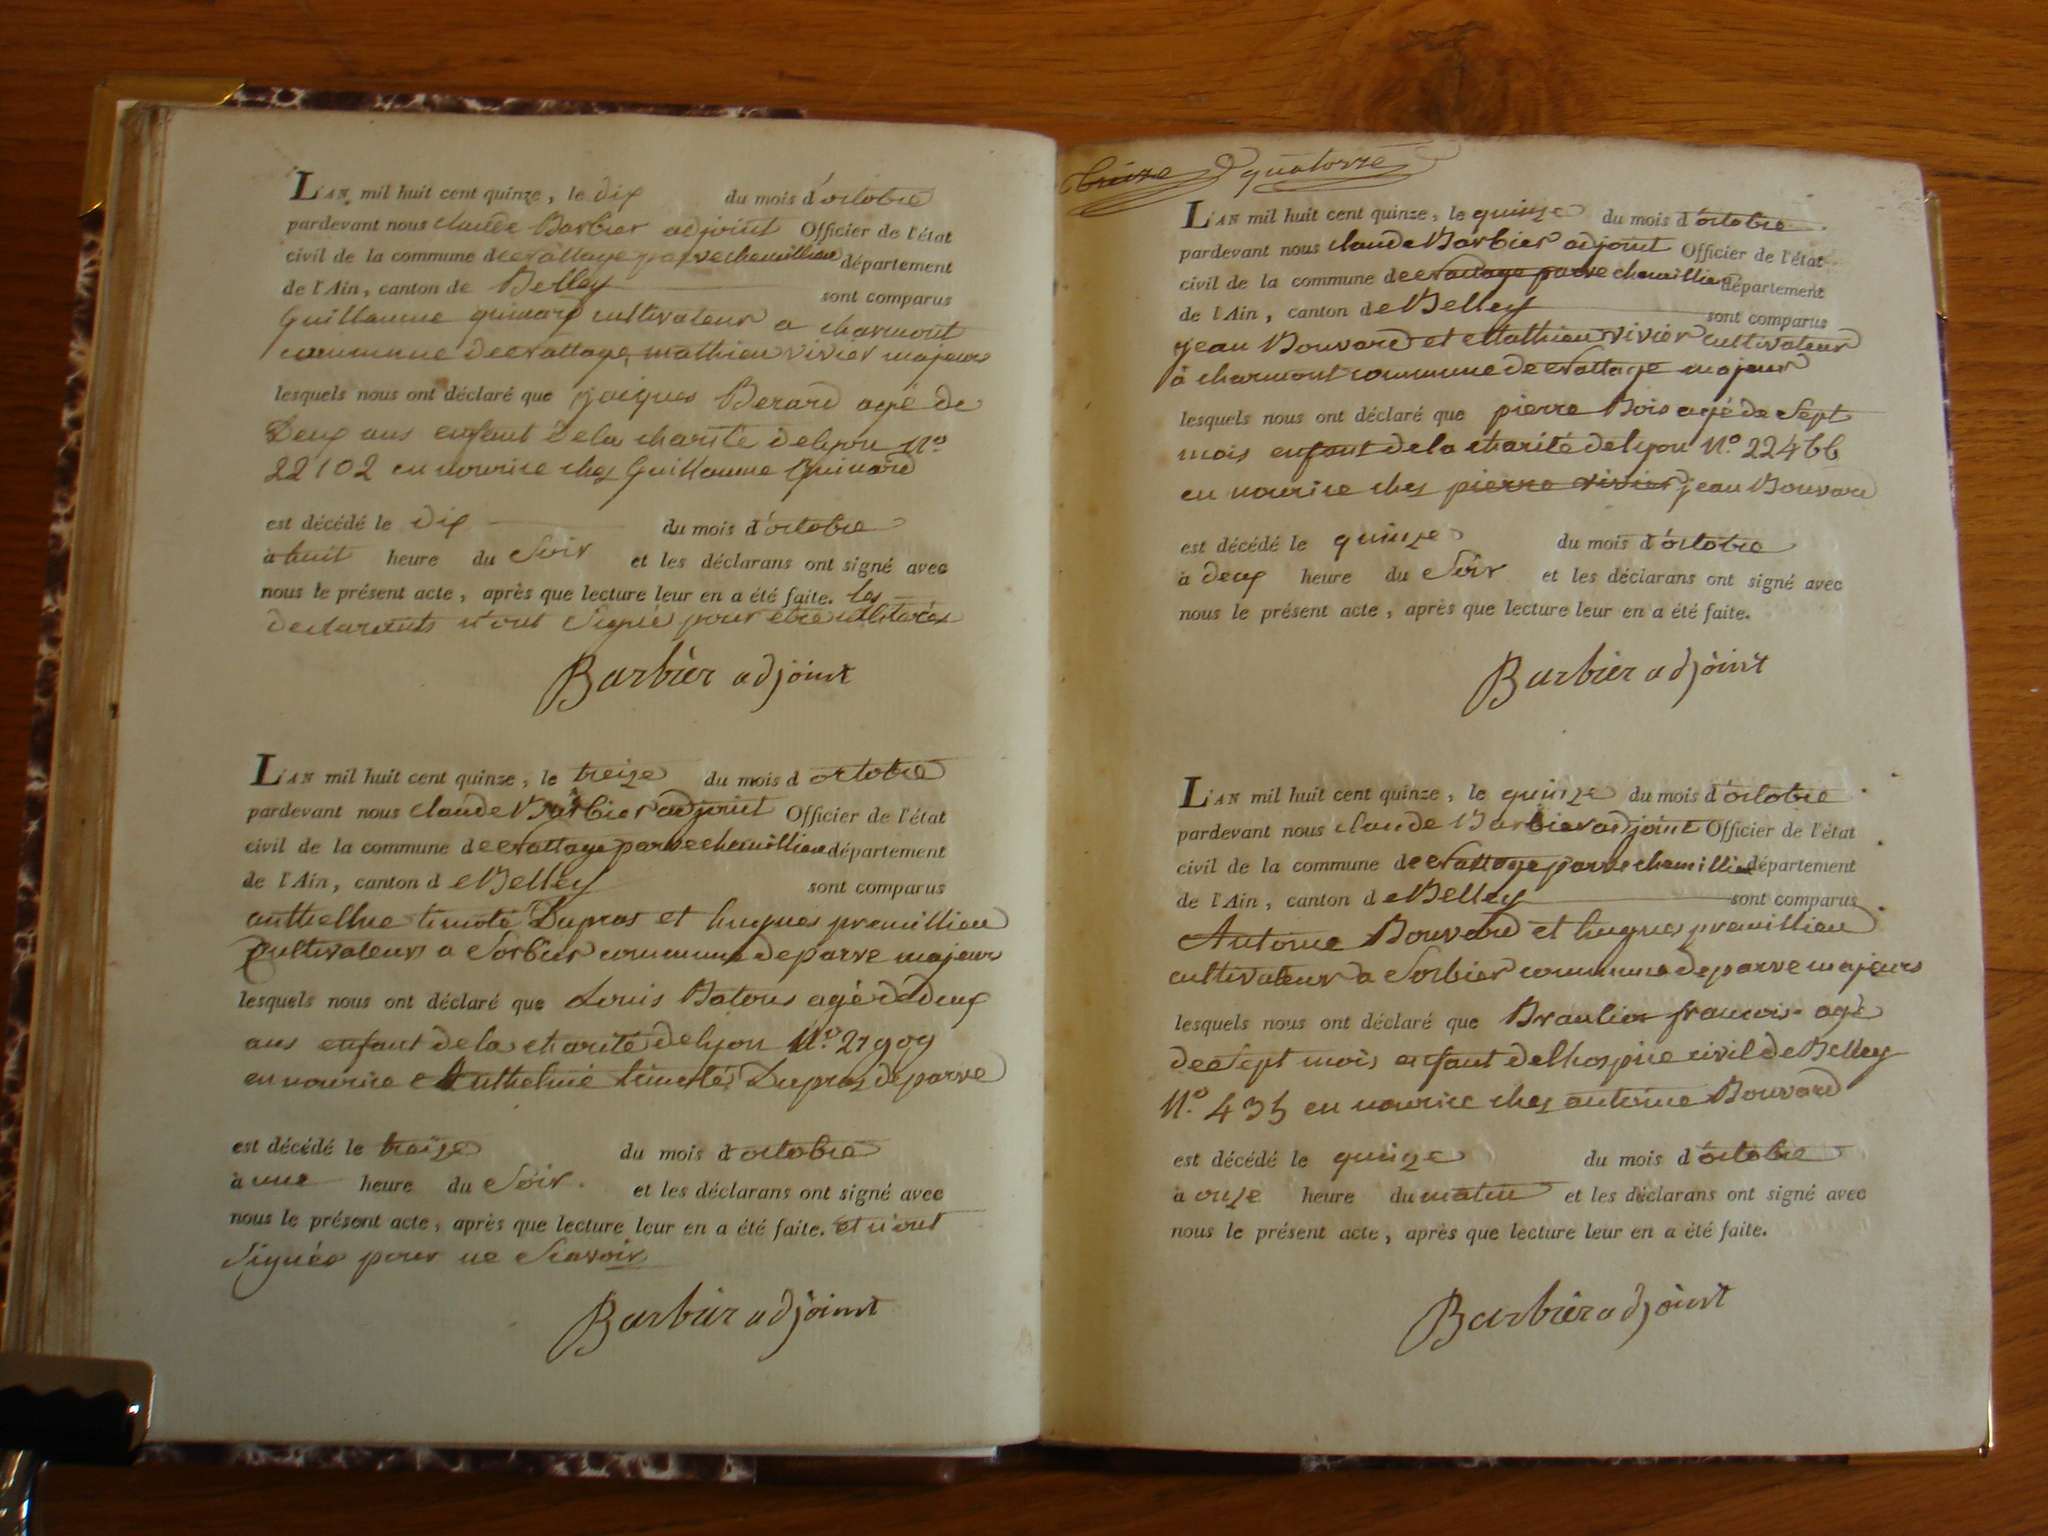 L'AN mil huit cent quinze, le dix du mois d'octobre
pardevant nous claude Barbier adjoint Officier de l'état
civil de la commune de nattage parve chemillieu département
de l'Ain, canton de Belley sont comparus
Guillaume quinard cultivateur a charmont
commune de nattage, mathieu vivier majeurs
lesquels nous ont déclaré que jacques Berard agé de
Deux ans enfant de la charité de lyon N.o
22102 en nourice chez Guillaume Quinard
est décédé le dix du mois d'octobre
à huit heure du Soir et les déclarans ont signé avec
nous le présent acte, après que lecture leur en a été faite. les
declarants n'ont Signé pour être
Barbier adjoint
L'AN mil huit cent quinze, le treize du mois d octobre
pardevant nous claude Barbier adjoint Officier de l'état
civil de la commune de nattage parve chemillieu département
de l'Ain, canton d e Belley sont comparus
anthelme timoté Dupras et hugues premillieu
cultivateurs a Sorbier commune de parve majeurs
lesquels nous ont déclaré que Louis Batons agé de deux
ans enfant de la charité de lyon N.o 21909
en nourice Anthelme timoté Dupras de parve
est décédé le treize du mois d'octobre
à une heure du Soir. et les déclarans ont signé avec
nous le présent acte, après que lecture leur en a été faite. et n'ont
Signés pour ne Scavoir
Barbier adjoint
treize quatorze
L'AN mil huit cent quinze, le quinze du mois d'octobre
pardevant nous claude Barbier adjoint Officier de l'état
civil de la commune de nattage parve chemillieu département
de l'Ain, canton d e Belley sont comparus
jean Bouvard et Mathieu vivier cultivateur
à charmont commune de nattage majeur
lesquels nous ont déclaré que pierre Bois agé de Sept
mois enfant de la charité de lyon N.o 22466
en nourice chez pierre vivier jean Bouvard
est décédé le quinze du mois d'octobre
à deux heure du Soir et les déclarans ont signé avec
nous le présent acte, après que lecture leur en a été faite.
Barbier adjoint
L'AN mil huit cent quinze, le quinze du mois d'octobre
pardevant nous claude Barbier adjoint Officier de l'état
civil de la commune de nattage parve chemillieu département
de l'Ain, canton d e Belley sont comparus
Antoine Bouvard et hugues premillieu
cultivateurs a Sorbier commune de parve majeurs
lesquels nous ont déclaré que Braulier francois agé
de Sept mois enfant delhospice civil de Belley
N.o 435 en nourice chez antoine Bouvard
est décédé le quinze du mois d'octobre
à onze heure du matin et les déclarans ont signé avec
nous le présent acte, après que lecture leur en a été faite.
Barbier adjoint